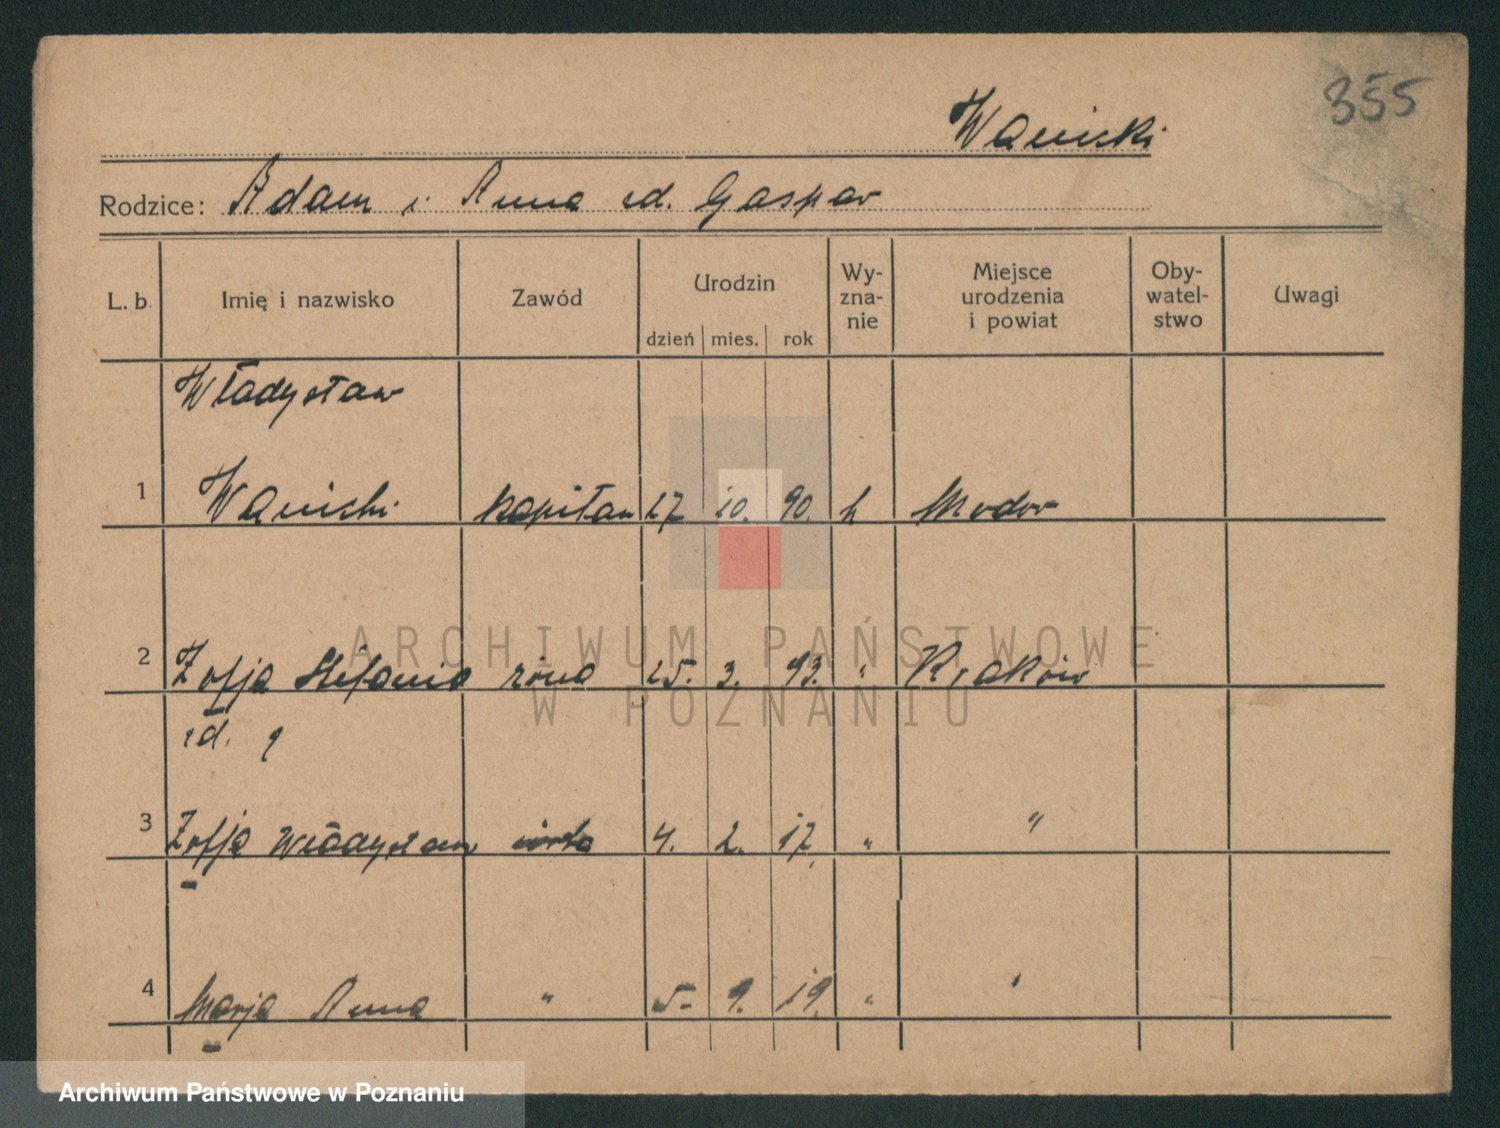 355
Wanicki
Rodzice: Adam i Anna zd. Gaspar
L. b. Imię i nazwisko Zawód Urodzin dzień mies. rok Wy-zna-nie Miejsce urodzenia i powiat Oby-watel-stwo Uwagi
Władysław
1 Wanicki kapitan 27 10. 90. k
2 Zofja Stefania żona 25. 3. 93. " Kraków
zd.
3 Zofja Władysława córka 4. 2. 17. " "
4 Marja Anna " 5. 9. 19. " "
ARCHIWUM PAŃSTWOWE
W POZNANIU
Archiwum Państwowe w Poznaniu